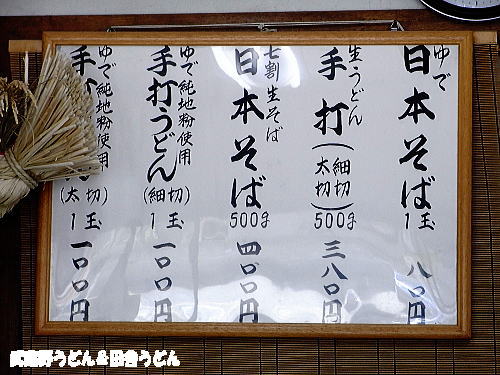 ゆで
日本そば
1玉
八〇円
生うどん
手打(太切 細切)
500g
三八〇円
七割生そば
日本そば
500g
四〇〇円
ゆで純地粉使用
手打うどん
(細切)
1玉
一〇〇円
ゆで純地粉使用
手
(太切)
1玉
一〇〇円
武蔵野うどん&田舎うどん